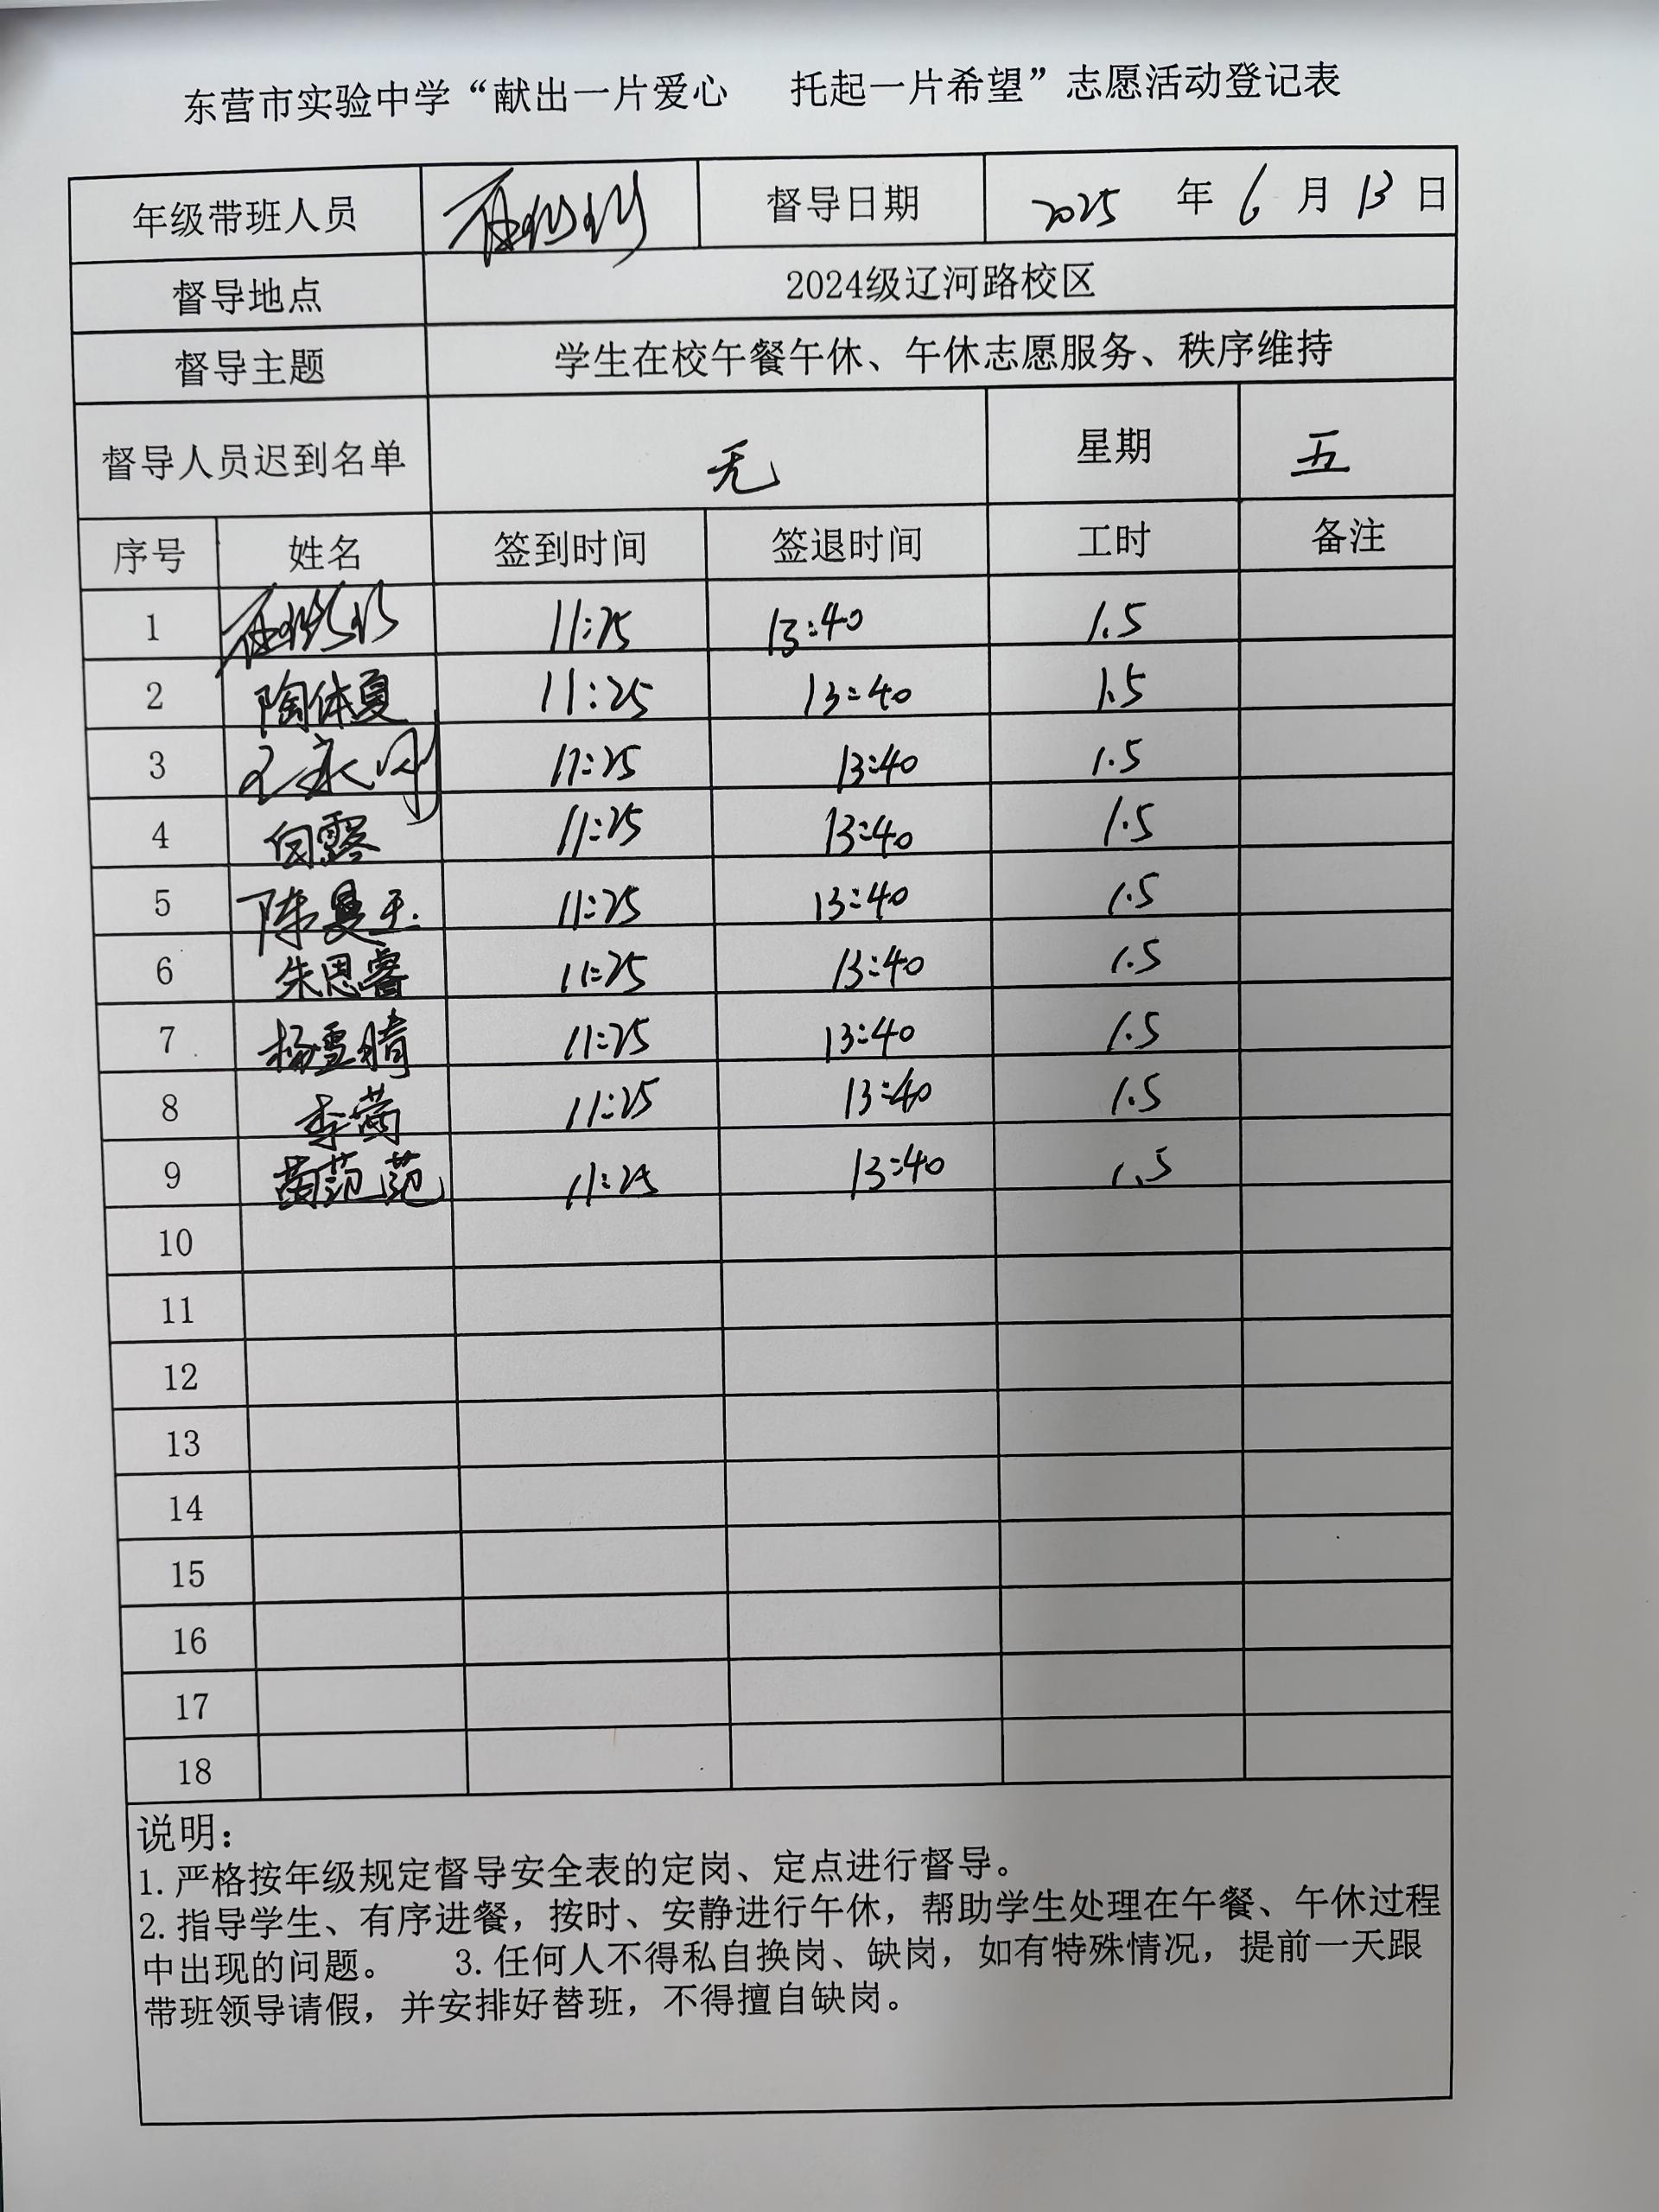 东营市实验中学“献出一片爱心 托起一片希望”志愿活动登记表
年级带班人员 督导日期 2025 年 6 月 13 日
督导地点 2024级辽河路校区
督导主题 学生在校午餐午休、午休志愿服务、秩序维持
督导人员迟到名单 无 星期 五
序号 姓名 签到时间 签退时间 工时 备注
1 11:25 13:40 1.5
2 陶体夏 11:25 13:40 1.5
3 王永刚 11:25 13:40 1.5
4 白露 11:25 13:40 1.5
5 陈曼玉 11:25 13:40 1.5
6 朱思睿 11:25 13:40 1.5
7 杨雪晴 11:25 13:40 1.5
8 11:25 13:40 1.5
9 11:25 13:40 1.5
10
11
12
13
14
15
16
17
18
说明：
1.严格按年级规定督导安全表的定岗、定点进行督导。
2.指导学生、有序进餐，按时、安静进行午休，帮助学生处理在午餐、午休过程
中出现的问题。 3.任何人不得私自换岗、缺岗，如有特殊情况，提前一天跟
带班领导请假，并安排好替班，不得擅自缺岗。